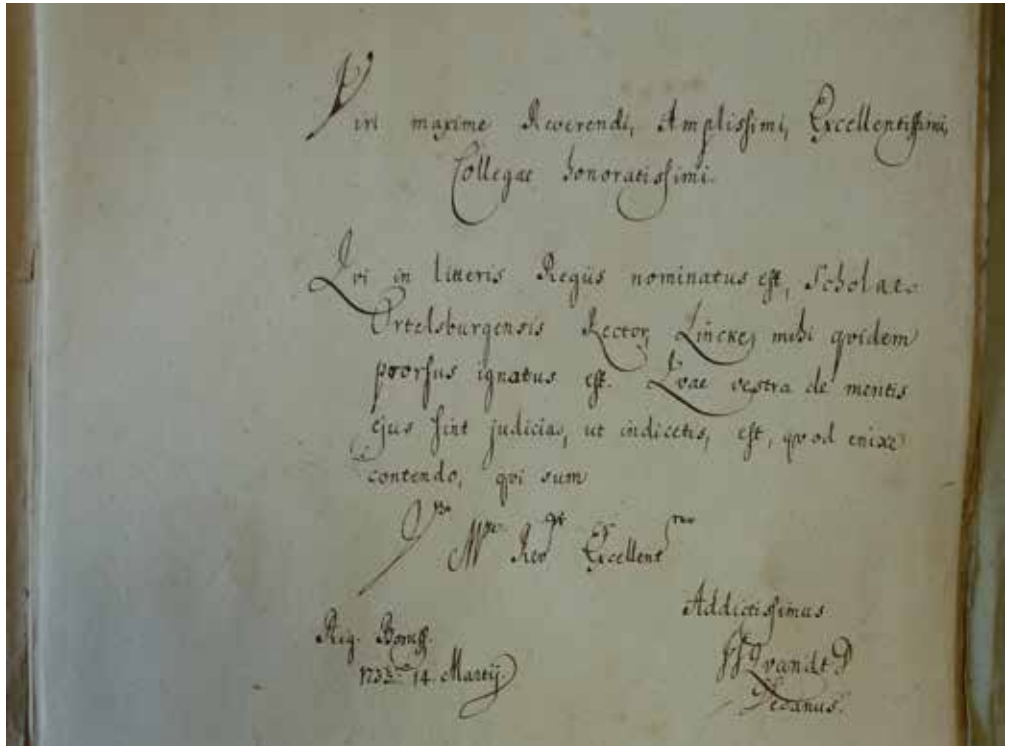 Viri maxime Reverendi, Amplissimi, Excellentissimi,
Collegae honoratissimi.
Qvi in litteris Regiis nominatus est, Scholae
Ortelsburgensis Rector, Lincke, mihi qvidem
prorsus ignatus est. Qvae vestra de mentis
ejus sint judicia, ut indicetis, est, qvod enixe
contendo, qvi sum
Max. Rev. Excellent
Addictissimus
Reg. Boruss.
1733. 14. Martij.
Qvandt D
Decanus.